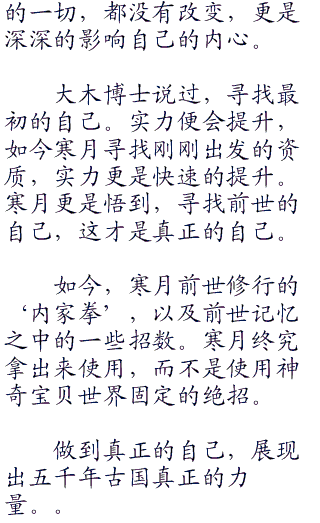 的一切，都没有改变，更是
深深的影响自己的内心。
大木博士说过，寻找最
初的自己。实力便会提升，
如今寒月寻找刚刚出发的资
质，实力更是快速的提升。
寒月更是悟到，寻找前世的
自己，这才是真正的自己。
如今，寒月前世修行的
‘内家拳’，以及前世记忆
之中的一些招数。寒月终究
拿出来使用，而不是使用神
奇宝贝世界固定的绝招。
做到真正的自己，展现
出五千年古国真正的力
量。。